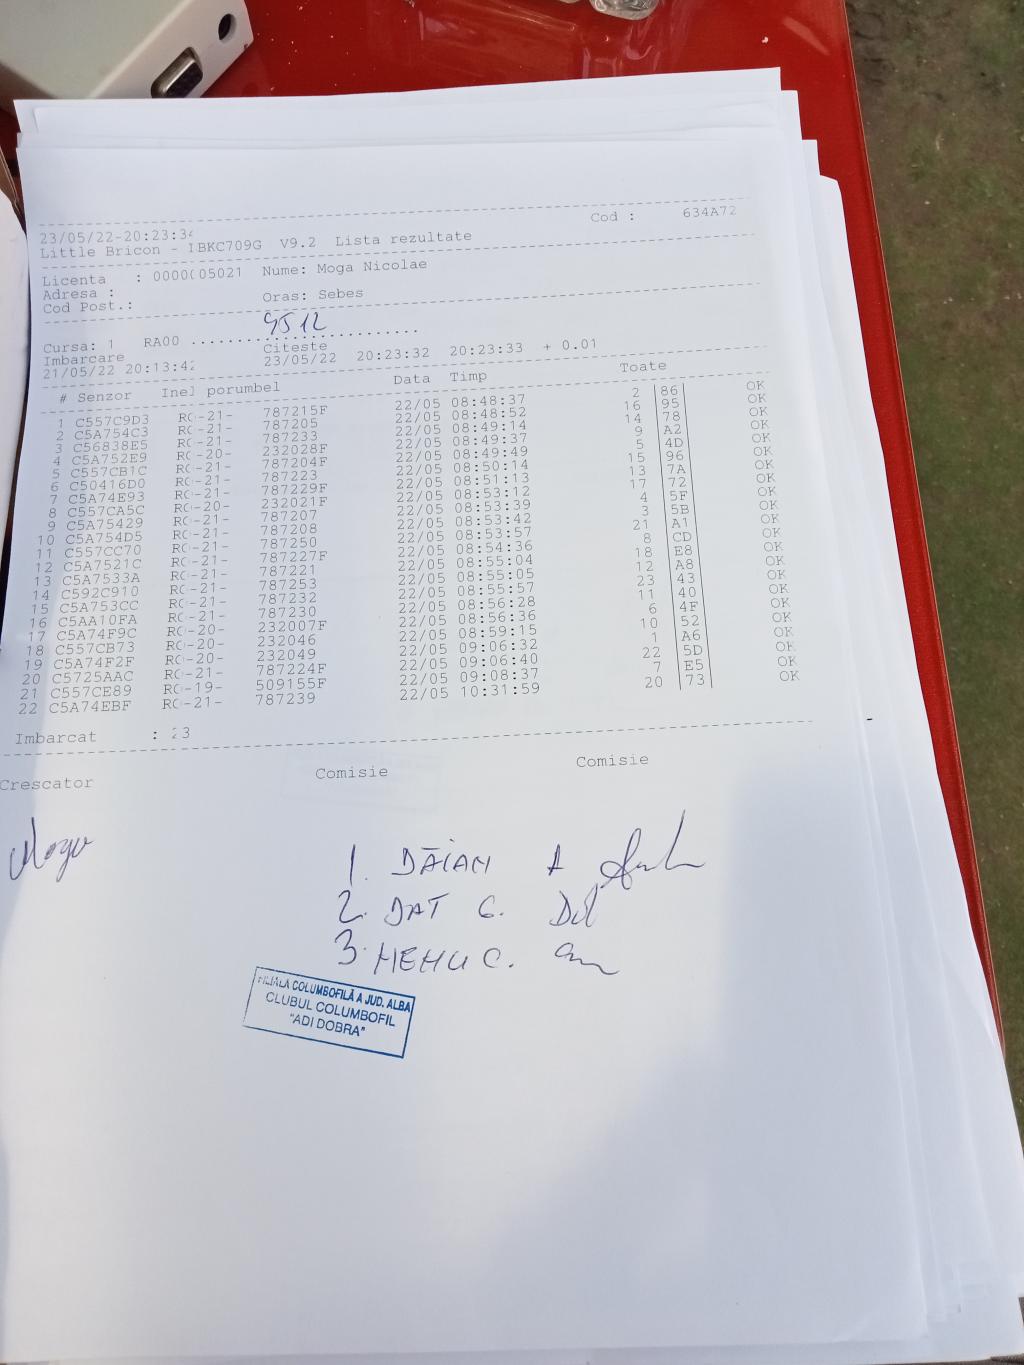 Cod : 634A72
23/05/22-20:23:34
Little Bricon - IBKC709G V9.2 Lista rezultate
Licenta : 0000(05021 Nume: Moga Nicolae
Adresa :
Cod Post.: Oras: Sebes
9512
Cursa: 1 RA00 ..............................
Imbarcare Citeste
21/05/22 20:13:42 23/05/22 20:23:32 20:23:33 + 0.01
# Senzor Inel porumbel Data Timp Toate
1 C557C9D3 RO-21- 787215F 22/05 08:48:37 2 86 OK
2 C5A754C3 RO-21- 787205 22/05 08:48:52 16 95 OK
3 C56838E5 RO-21- 787233 22/05 08:49:14 14 78 OK
4 C5A752E9 RO-20- 232028F 22/05 08:49:37 9 A2 OK
5 C557CB1C RO-21- 787204F 22/05 08:49:49 5 4D OK
6 C50416D0 RO-21- 787223 22/05 08:50:14 15 96 OK
7 C5A74E93 RO-21- 787229F 22/05 08:51:13 13 7A OK
8 C557CA5C RO-20- 232021F 22/05 08:53:12 17 72 OK
9 C5A75429 RO-21- 787207 22/05 08:53:39 4 5F OK
10 C5A754D5 RO-21- 787208 22/05 08:53:42 3 5B OK
11 C557CC70 RO-21- 787250 22/05 08:53:57 21 A1 OK
12 C5A7521C RO-21- 787227F 22/05 08:54:36 8 CD OK
13 C5A7533A RO-21- 787221 22/05 08:55:04 18 E8 OK
14 C592C910 RO-21- 787253 22/05 08:55:05 12 A8 OK
15 C5A753CC RO-21- 787232 22/05 08:55:57 23 43 OK
16 C5AA10FA RO-21- 787230 22/05 08:56:28 11 40 OK
17 C5A74F9C RO-20- 232007F 22/05 08:56:36 6 4F OK
18 C557CB73 RO-20- 232046 22/05 08:59:15 10 52 OK
19 C5A74F2F RO-20- 232049 22/05 09:06:32 1 A6 OK
20 C5725AAC RO-21- 787224F 22/05 09:06:40 22 5D OK
21 C557CE89 RO-19- 509155F 22/05 09:08:37 7 E5 OK
22 C5A74EBF RO-21- 787239 22/05 10:31:59 20 73 OK
Imbarcat : 23
Crescator Comisie Comisie
Moga
1. DĂIAN A
2. DAT G.
3. HEHU C.
FILIALA COLUMBOFILĂ A JUD. ALBA
CLUBUL COLUMBOFIL
"ADI DOBRA"